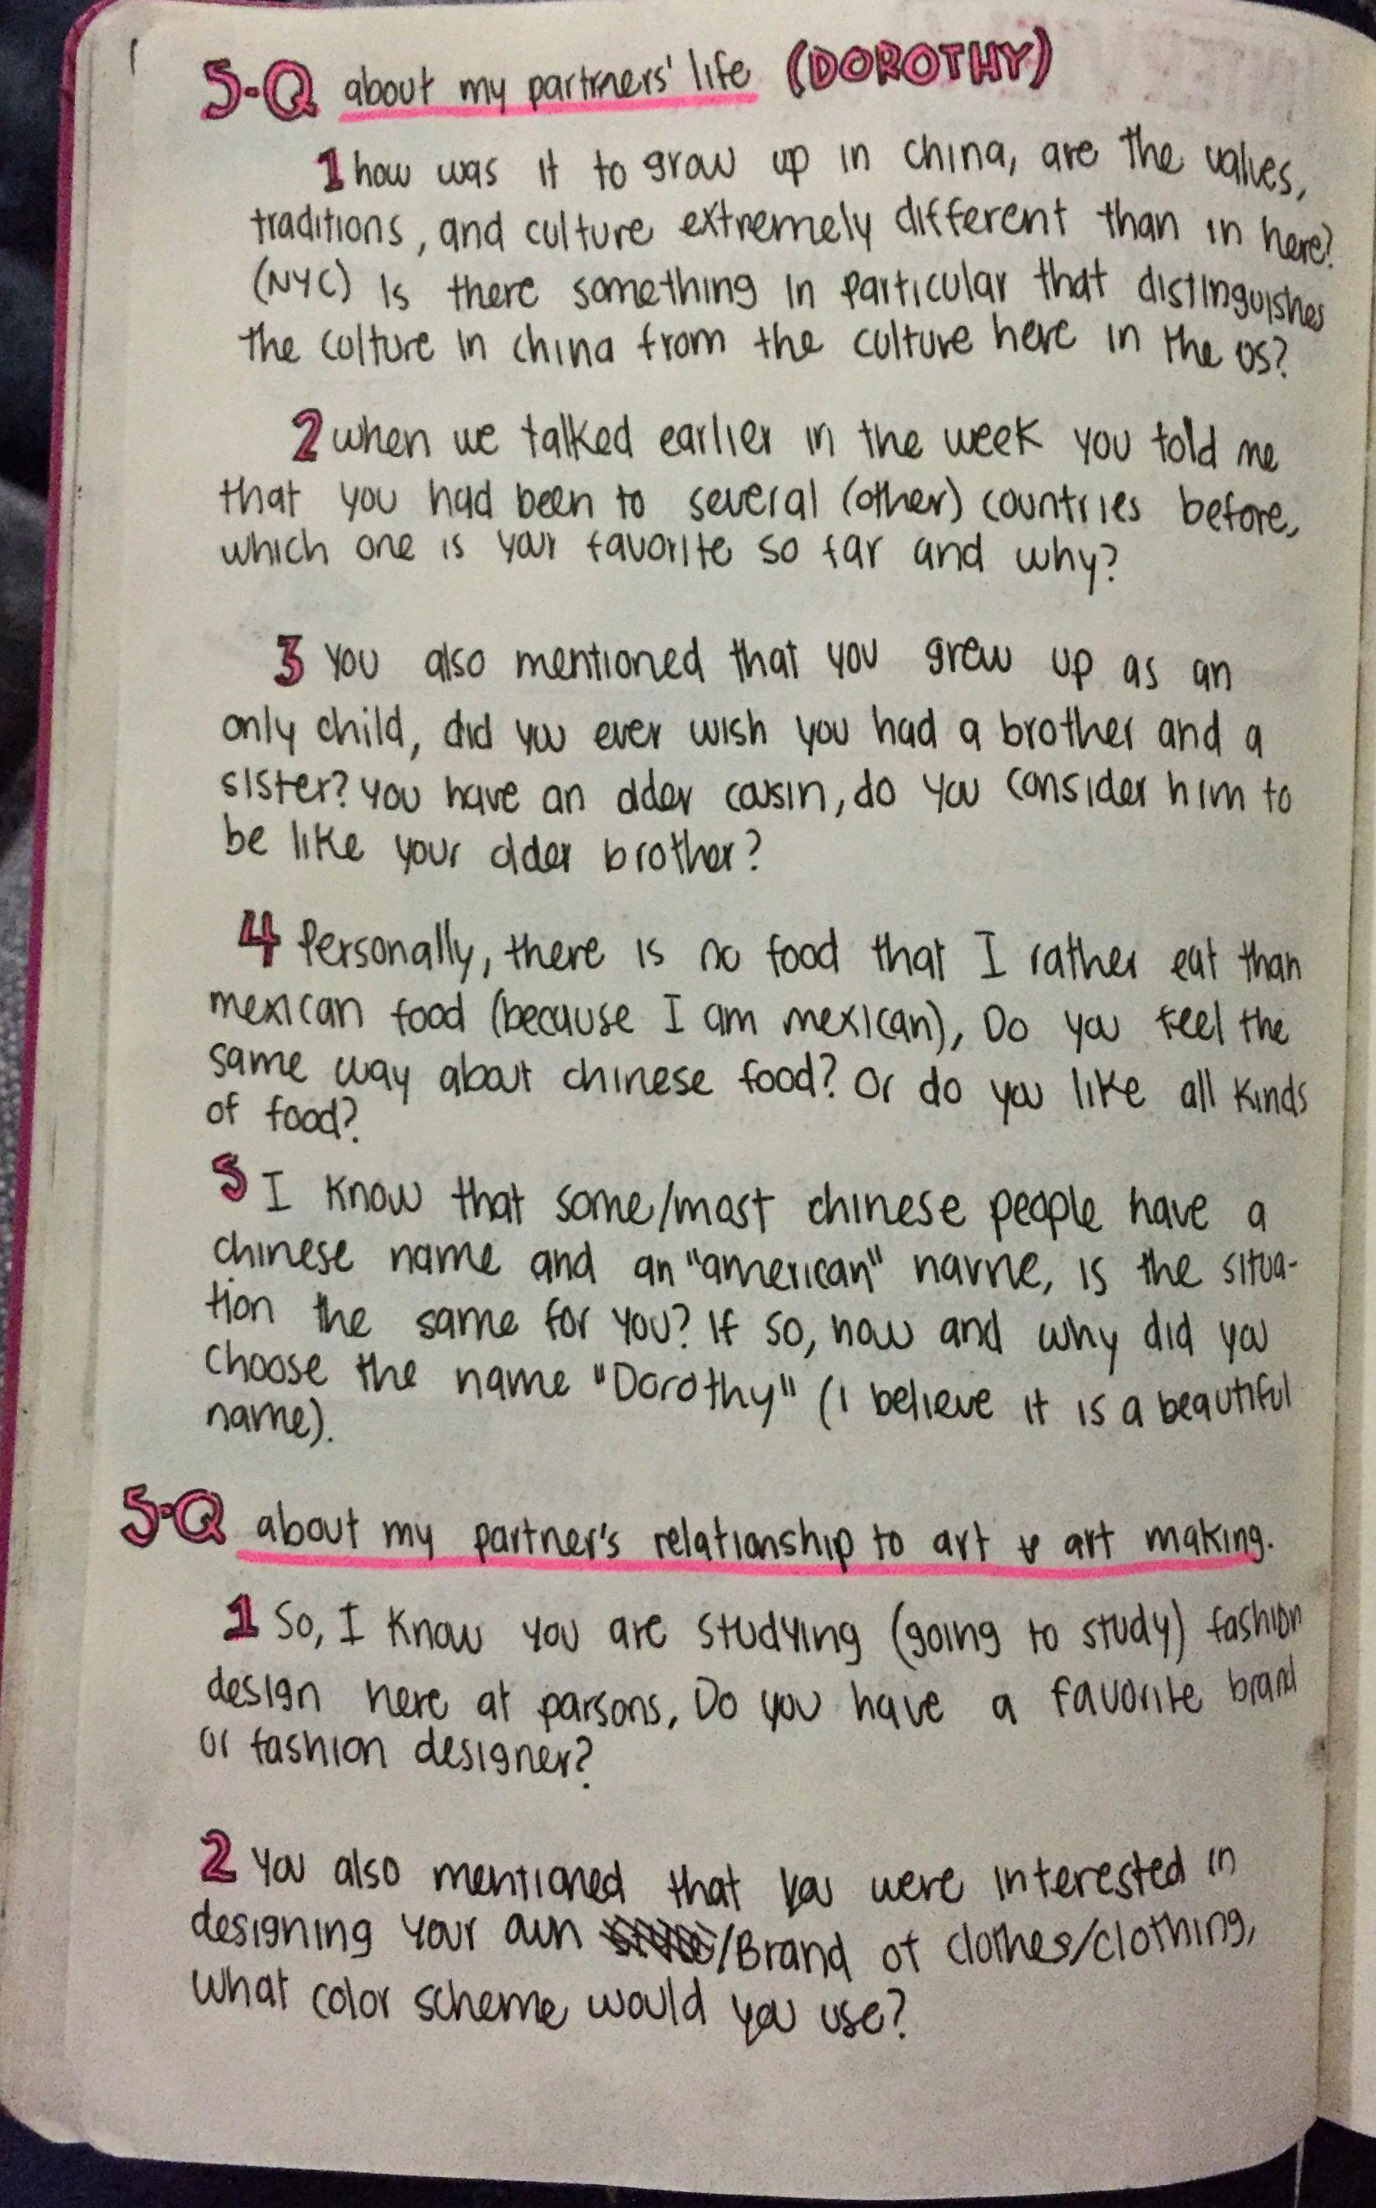 5-Q about my partners' life (DOROTHY)
1 how was it to grow up in china, are the values,
traditions, and culture extremely different than in here?
(NYC) Is there something in particular that distinguishes
the culture in china from the culture here in the us?
2 when we talked earlier in the week you told me
that you had been to several (other) countries before,
which one is your favorite so far and why?
3 You also mentioned that you grew up as an
only child, did you ever wish you had a brother and a
sister? you have an older cousin, do you consider him to
be like your older brother?
4 Personally, there is no food that I rather eat than
mexican food (because I am mexican), Do you feel the
same way about chinese food? Or do you like all kinds
of food?
5 I know that some/most chinese people have a
chinese name and an "american" name, is the situa-
tion the same for you? If so, how and why did you
choose the name "Dorothy" (I believe it is a beautiful
name).
5-Q about my partner's relationship to art & art making.
1 So, I know you are studying (going to study) fashion
design here at parsons, Do you have a favorite brand
or fashion designer?
2 You also mentioned that you were interested in
designing your own /Brand of clothes/clothing,
what color scheme would you use?